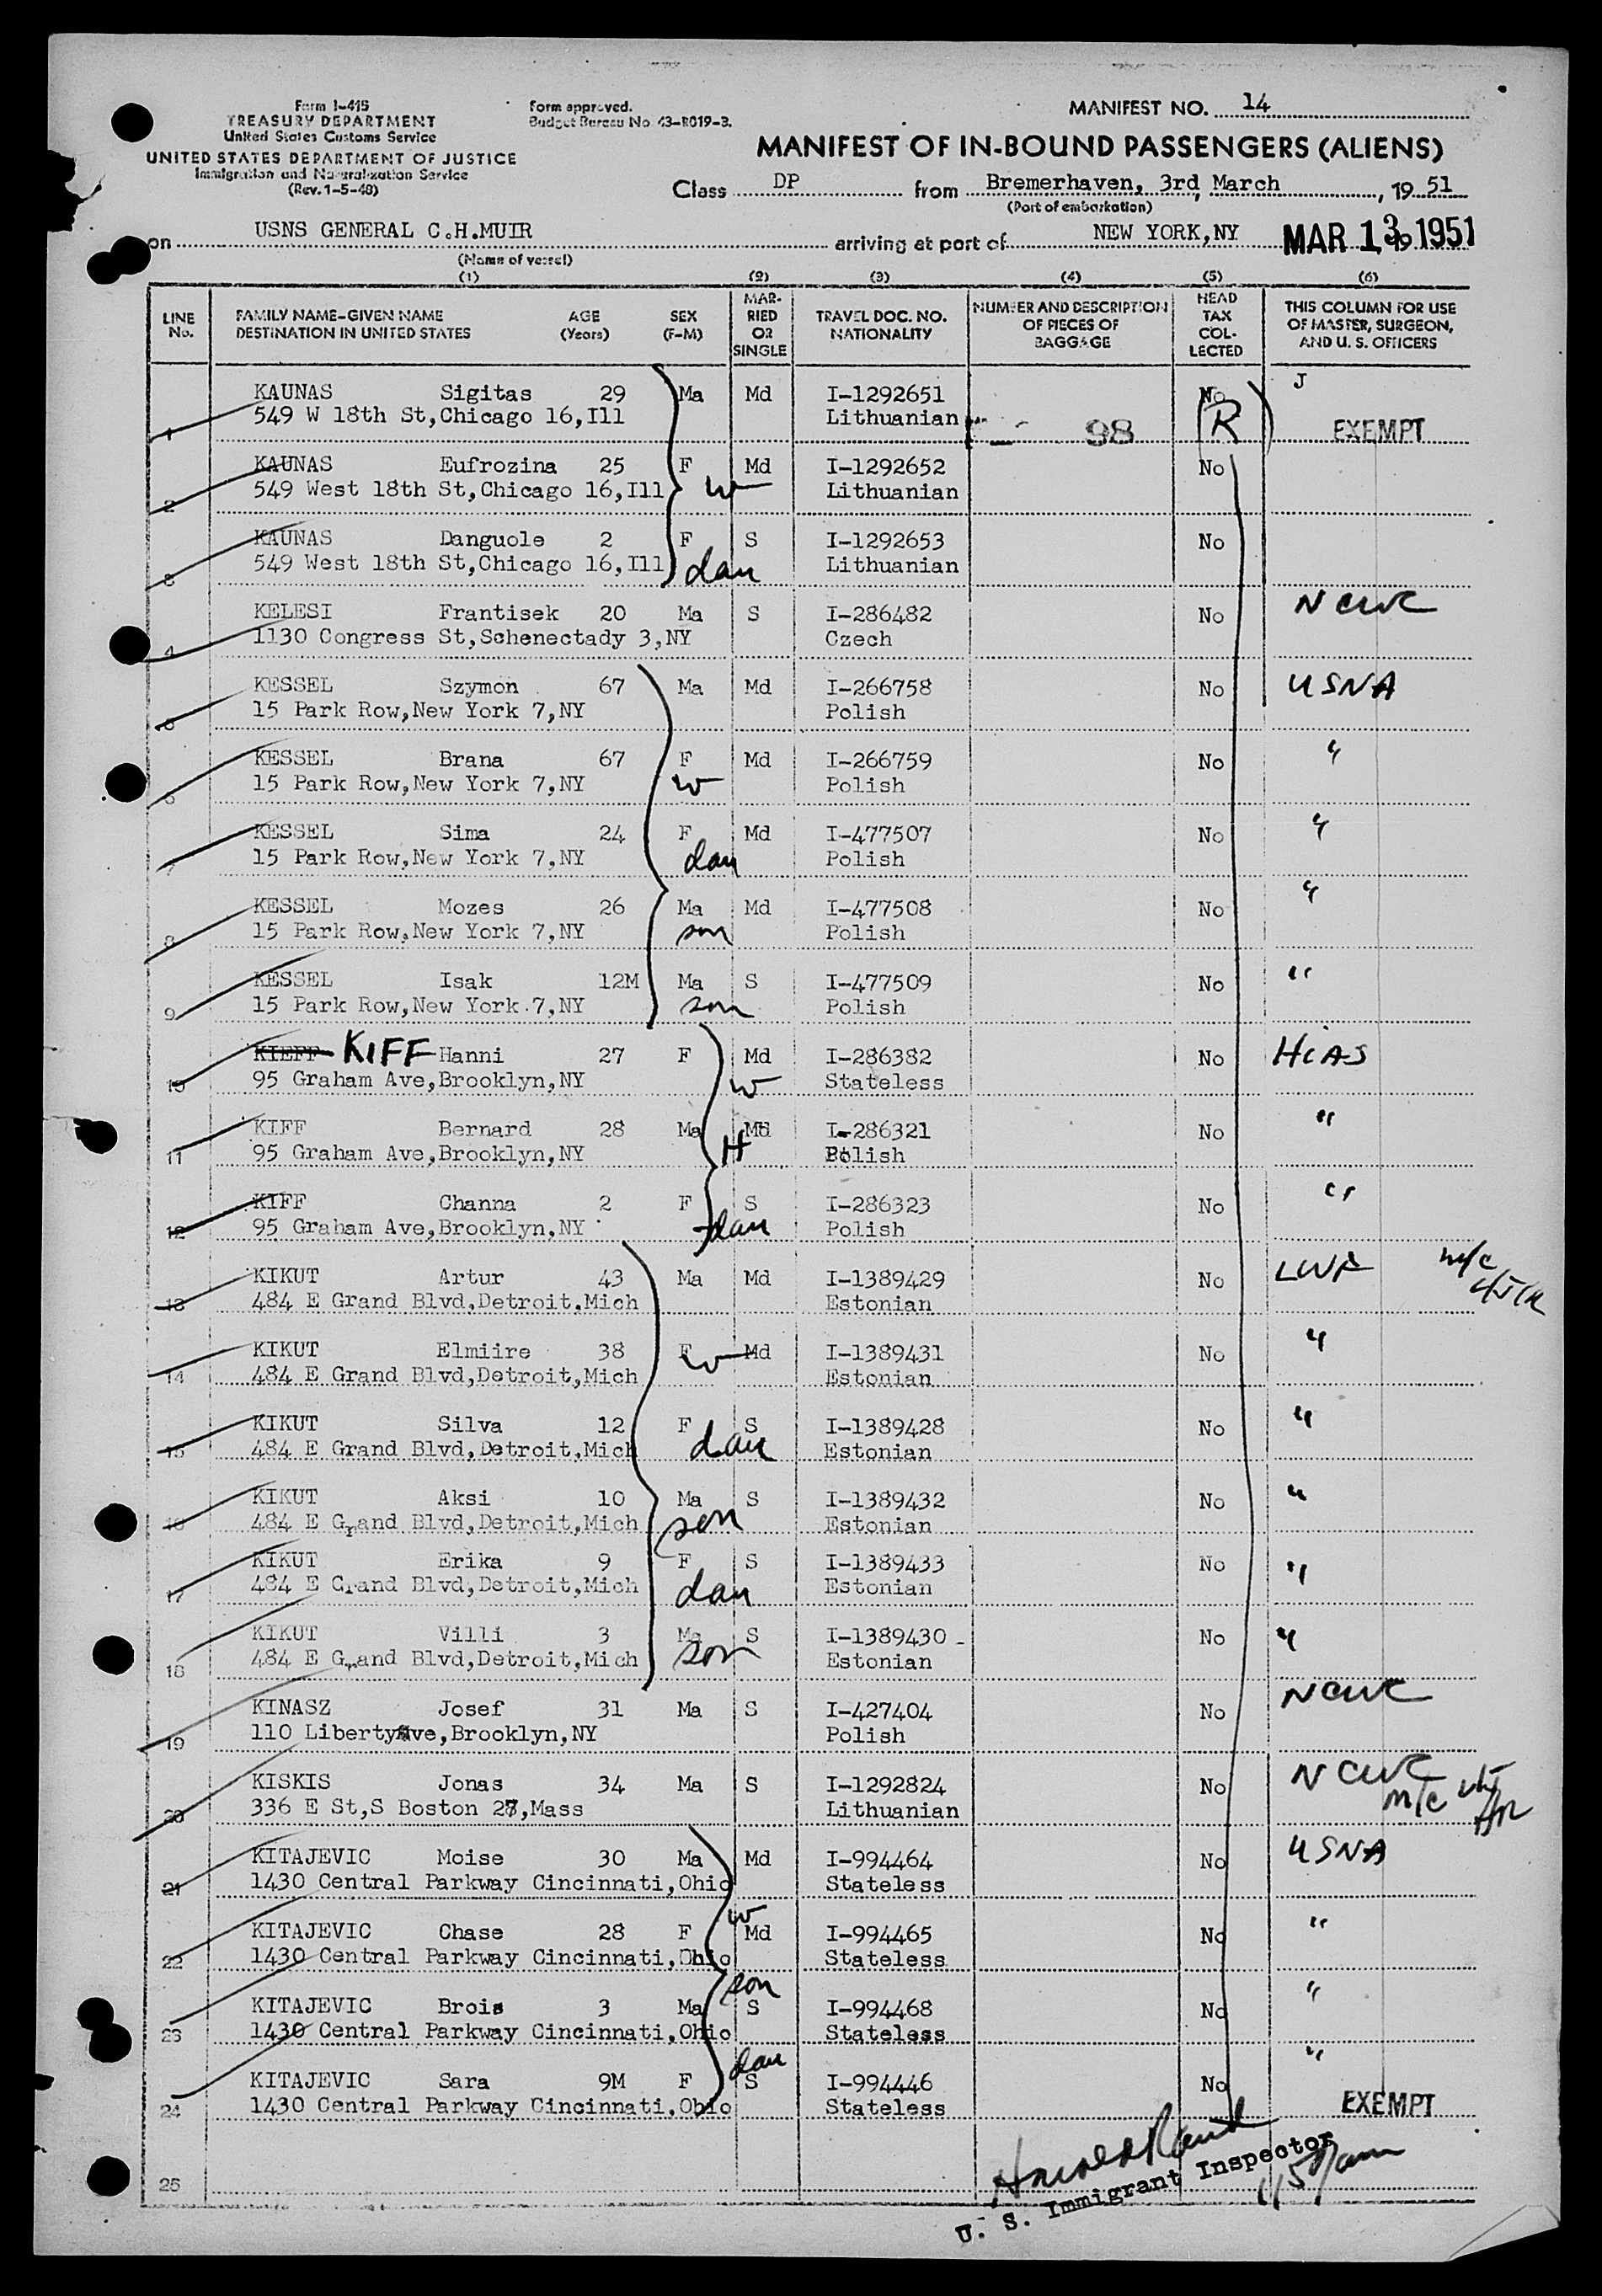 Form I-415
TREASURY DEPARTMENT
United States Customs Service
UNITED STATES DEPARTMENT OF JUSTICE
Immigration and Naturalization Service
(Rev. 1-5-48)
Form approved.
Budget Bureau No. 43-R019-3.
MANIFEST NO. 14
MANIFEST OF IN-BOUND PASSENGERS (ALIENS)
Class DP from Bremerhaven, 3rd, March, 19 51
(Port of embarkation)
on USNS GENERAL C.H.MUIR arriving at port of NEW YORK,NY MAR 13 1951
(Name of vessel)
(1) (2) (3) (4) (5) (6)
LINE No. FAMILY NAME-GIVEN NAME DESTINATION IN UNITED STATES AGE (Years) SEX (F-M) MAR-RIED OR SINGLE TRAVEL DOC. NO. NATIONALITY NUMBER AND DESCRIPTION OF PIECES OF BAGGAGE HEAD TAX COL-LECTED THIS COLUMN FOR USE OF MASTER, SURGEON, AND U. S. OFFICERS
KAUNAS Sigitas 29 Ma Md I-1292651 No J
1 549 W 18th St,Chicago 16,Ill Lithuanian 98 (R) EXEMPT
KAUNAS Eufrozina 25 F Md I-1292652 No
2 549 West 18th St,Chicago 16,Ill w Lithuanian
KAUNAS Danguole 2 F S I-1292653 No
3 549 West 18th St,Chicago 16,Ill dau Lithuanian
KELESI Frantisek 20 Ma S I-286482 No NCWC
4 1130 Congress St,Schenectady 3,NY Czech
KESSEL Szymon 67 Ma Md I-266758 No USNA
5 15 Park Row,New York 7,NY Polish
KESSEL Brana 67 F Md I-266759 No "
6 15 Park Row,New York 7,NY w Polish
KESSEL Sima 24 F Md I-477507 No "
7 15 Park Row,New York 7,NY dau Polish
KESSEL Mozes 26 Ma Md I-477508 No "
8 15 Park Row,New York 7,NY son Polish
KESSEL Isak 12M Ma S I-477509 No "
9 15 Park Row,New York 7,NY son Polish
KIEFF KIFF Hanni 27 F Md I-286382 No HIAS
10 95 Graham Ave,Brooklyn,NY w Stateless
KIFF Bernard 28 Ma Md I-286321 No "
11 95 Graham Ave,Brooklyn,NY H Polish
KIFF Channa 2 F S I-286323 No "
12 95 Graham Ave,Brooklyn,NY dau Polish
KIKUT Artur 43 Ma Md I-1389429 No LWF m/c
13 484 E Grand Blvd,Detroit,Mich Estonian
KIKUT Elmiire 38 F w Md I-1389431 No "
14 484 E Grand Blvd,Detroit,Mich Estonian
KIKUT Silva 12 F S I-1389428 No "
15 484 E Grand Blvd,Detroit,Mich dau Estonian
KIKUT Aksi 10 Ma S I-1389432 No "
16 484 E Grand Blvd,Detroit,Mich son Estonian
KIKUT Erika 9 F S I-1389433 No "
17 484 E Grand Blvd,Detroit,Mich dau Estonian
KIKUT Villi 3 Ma S I-1389430 No "
18 484 E Grand Blvd,Detroit,Mich son Estonian
KINASZ Josef 31 Ma S I-427404 No NCWC
19 110 LibertyAve,Brooklyn,NY Polish
KISKIS Jonas 34 Ma S I-1292824 No NCWC
20 336 E St,S Boston 27,Mass Lithuanian m/c
KITAJEVIC Moise 30 Ma Md I-994464 No USNA
21 1430 Central Parkway Cincinnati,Ohio Stateless
KITAJEVIC Chase 28 F w Md I-994465 No "
22 1430 Central Parkway Cincinnati,Ohio Stateless
KITAJEVIC Brois 3 Ma son S I-994468 No "
23 1430 Central Parkway Cincinnati,Ohio Stateless
KITAJEVIC Sara 9M F dau S I-994446 No "
24 1430 Central Parkway Cincinnati,Ohio Stateless EXEMPT
25
U. S. Immigrant Inspector